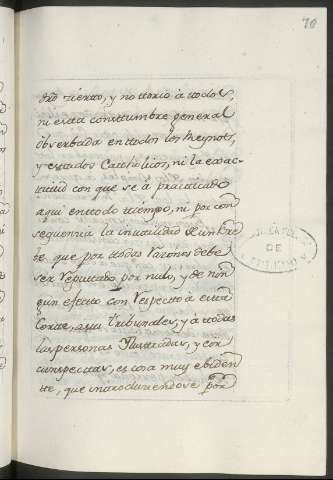 70
dho zierto, y notorio à ttodos,
ni estta constumbre general
observada en ttodos los Reynos,
y estados Catholicos, ni la exac-
ttitud con que se à practticado
aqui en ttodo tiempo, ni por con
sequenzia la inutilidad de un
que por ttodas razones debe
ser reputtado por nulo, y de nin
gun efecto con respecto à estta
Cortte, a sus tribunales, y à ttodas
las personas Ilustradas, y cir
cunspecttas, es cosa muy ebiden
tte, que introduciendose por
DE